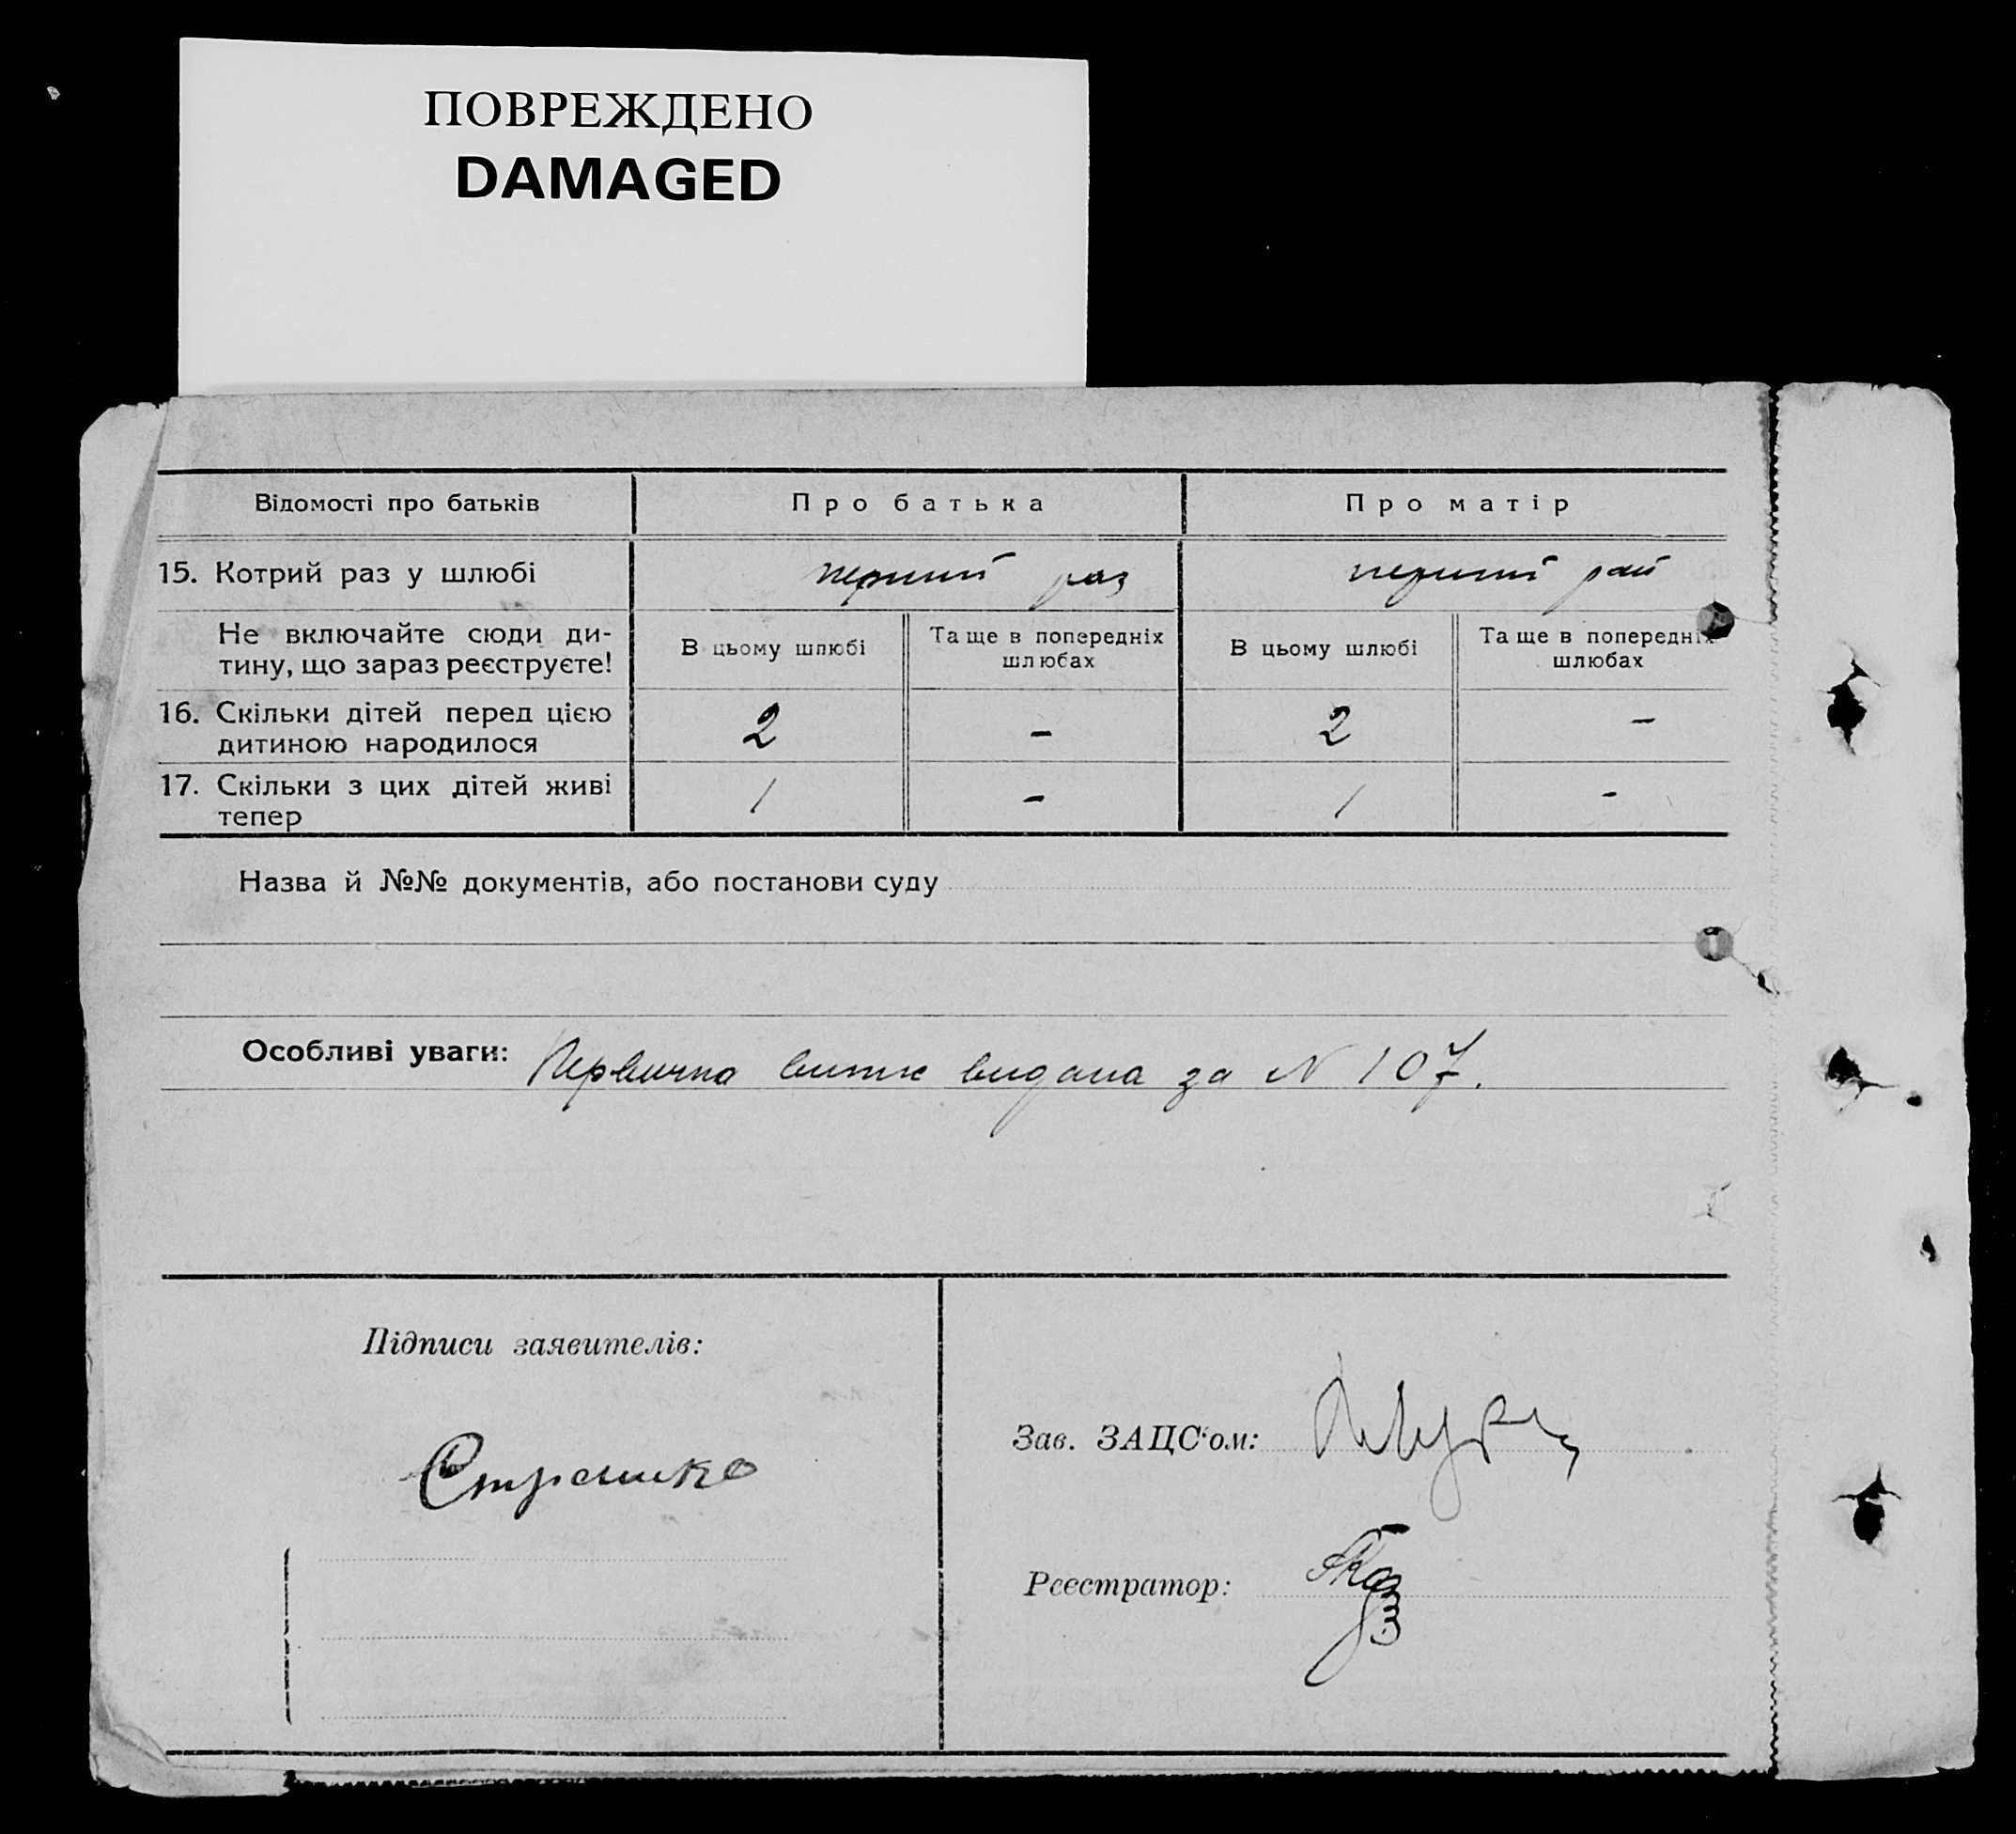 ПОВРЕЖДЕНО
DAMAGED
Відомості про батьків
Про батька
Про матір
15. Котрий раз у шлюбі
перший раз
перший раз
Не включайте сюди ди-
тину, що зараз реєструєте!
В цьому шлюбі
Та ще в попередніх
шлюбах
В цьому шлюбі
Та ще в попередніх
шлюбах
16. Скільки дітей перед цією
дитиною народилося
2
-
2
-
17. Скільки з цих дітей живі
тепер
1
-
1
-
Назва й №№ документів, або постанови суду
Особливі уваги: Первична видана за N 107.
Підписи заявителів:
Зав. ЗАЦС'ом:
Реєстратор: